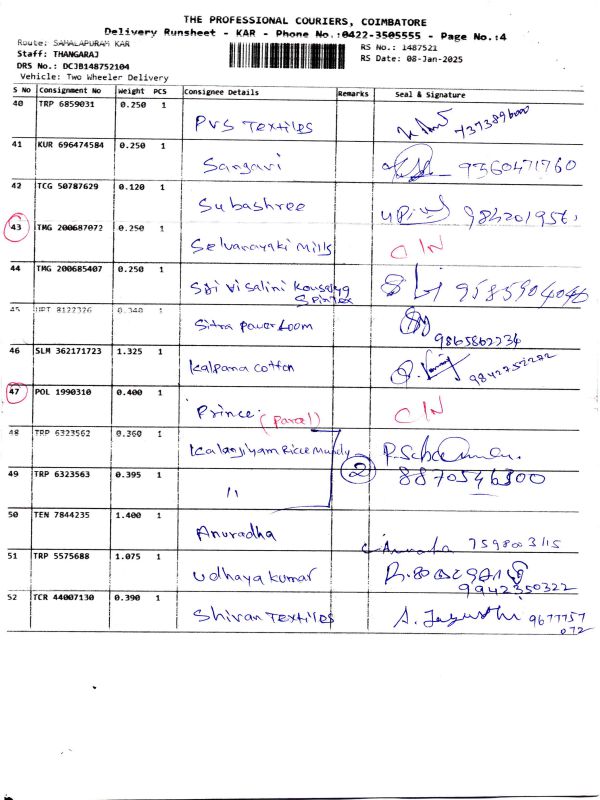 THE PROFESSIONAL COURIERS, COIMBATORE
Delivery Runsheet - KAR - Phone No.:0422-3505555 - Page No.:4
Route: SAMALAPURAM KAR
RS No.: 1487521
Staff: THANGARAJ
RS Date: 08-Jan-2025
DRS No.: DCJB148752104
Vehicle: Two Wheeler Delivery
S No Consignment No Weight PCS Consignee Details Remarks Seal & Signature
40 TRP 6859031 0.250 1
PVS Textiles
41 KUR 696474584 0.250 1
Sangavi 9360471760
42 TCG 50787629 0.120 1
Subashree
43 TMG 200687072 0.250 1
Selvanayaki Mills C/N
44 TMG 200685407 0.250 1
Sri Visalini Kousalya 9585904046
Spintex
45 UPT 8122326 0.340 1
Sitra Power Loom
9865862234
46 SLM 362171723 1.325 1
Kalpana Cotton 9842752272
47 POL 1990310 0.400 1
Prince (Parcel) C/N
48 TRP 6323562 0.360 1
Kalanjiyam Ricce Mundy
49 TRP 6323563 0.395 1
" 2 8870546300
50 TEN 7844235 1.400 1
Anuradha
51 TRP 5575688 1.075 1
Udhaya kumar
9942350322
52 TCR 44007130 0.390 1
Shivan Textiles 9677757
072